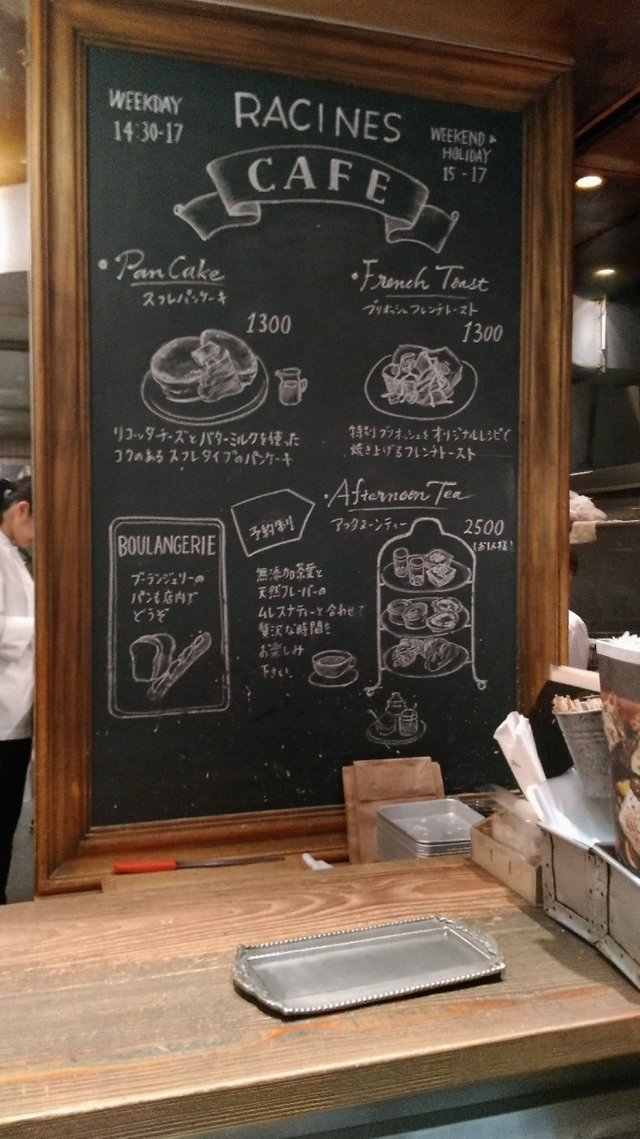 WEEKDAY
14:30-17
RACINES
CAFE
WEEKEND &
HOLIDAY
15-17
・Pan Cake
スフレパンケーキ
1300
リコッタチーズとバターミルクを使った
コクのあるスフレタイプのパンケーキ
・French Toast
ブリオッシュフレンチトースト
1300
特別ブリオッシュをオリジナルレシピで
焼き上げるフレンチトースト
BOULANGERIE
ブーランジェリーの
パンも店内で
どうぞ
予約制
・Afternoon Tea
アフタヌーンティー
2500
(お1人様)
無添加茶葉と
天然フレーバーの
ムレスナティーと合わせて
贅沢な時間を
お楽しみ
下さい.